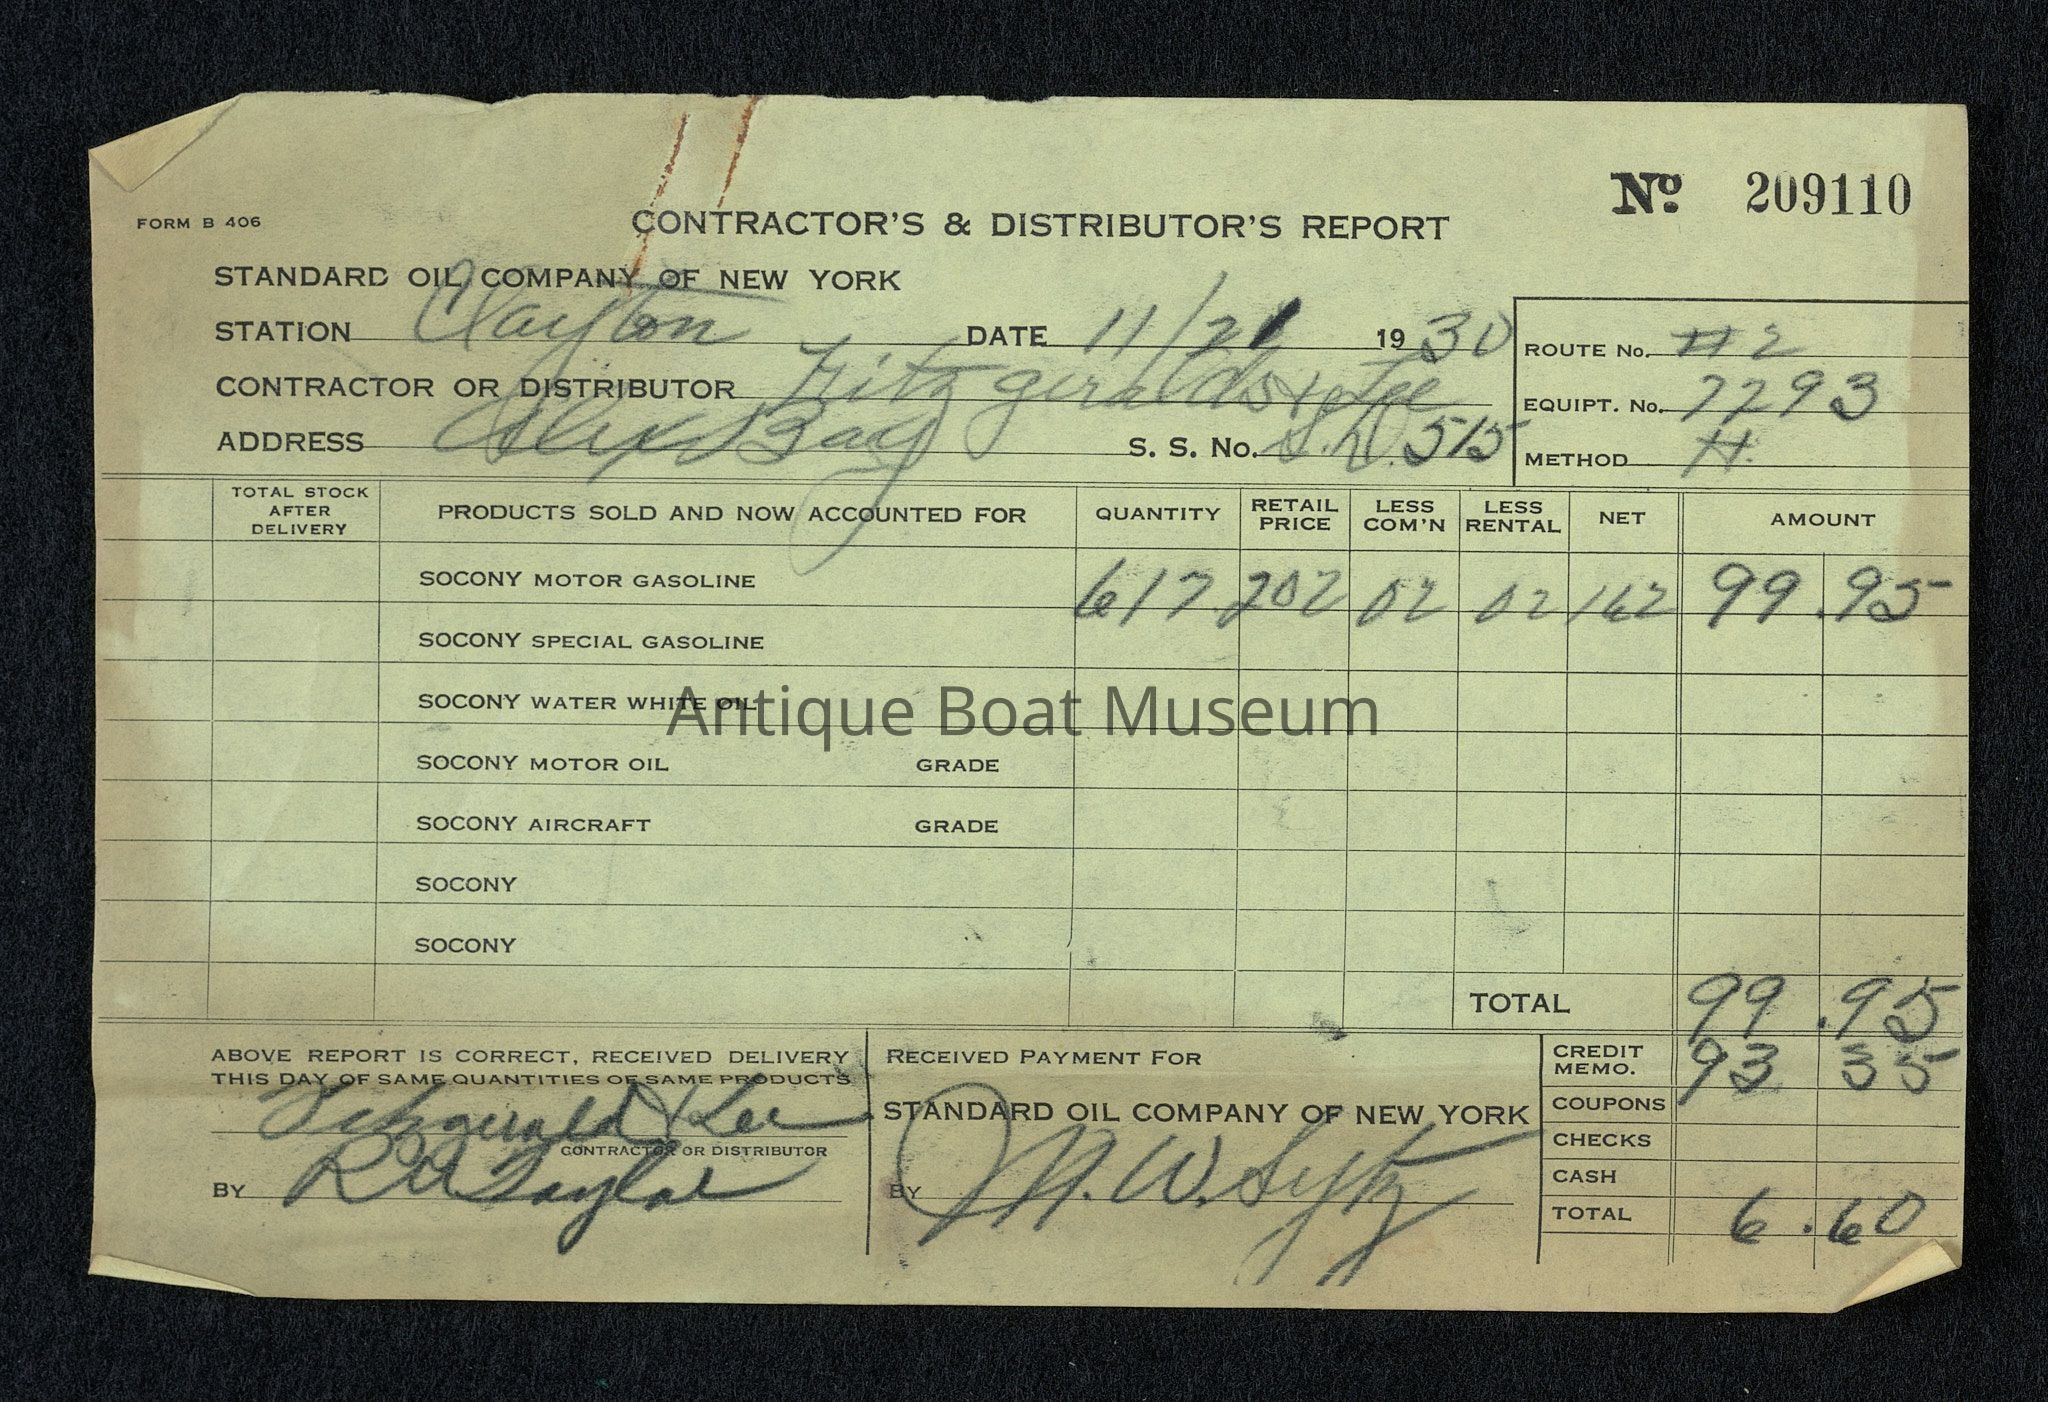 No 209110
FORM B 406
CONTRACTOR'S & DISTRIBUTOR'S REPORT
STANDARD OIL COMPANY OF NEW YORK
STATION Clayton DATE 11/21 1930
ROUTE No. #2
CONTRACTOR OR DISTRIBUTOR Fitzgerald & Lee
EQUIPT. No. 7293
ADDRESS Alex Bay S. S. No. S.D. 515
METHOD H.
TOTAL STOCK AFTER DELIVERY PRODUCTS SOLD AND NOW ACCOUNTED FOR QUANTITY RETAIL PRICE LESS COM'N LESS RENTAL NET AMOUNT
SOCONY MOTOR GASOLINE 617 202 02 02 162 99.95
SOCONY SPECIAL GASOLINE
SOCONY WATER WHITE OIL
Antique Boat Museum
SOCONY MOTOR OIL GRADE
SOCONY AIRCRAFT GRADE
SOCONY
SOCONY
TOTAL 99.95
ABOVE REPORT IS CORRECT, RECEIVED DELIVERY
THIS DAY OF SAME QUANTITIES OF SAME PRODUCTS
Fitzgerald & Lee
CONTRACTOR OR DISTRIBUTOR
BY R A Taylor
RECEIVED PAYMENT FOR
STANDARD OIL COMPANY OF NEW YORK
BY W.
CREDIT MEMO. 93 35
COUPONS
CHECKS
CASH
TOTAL 6.60